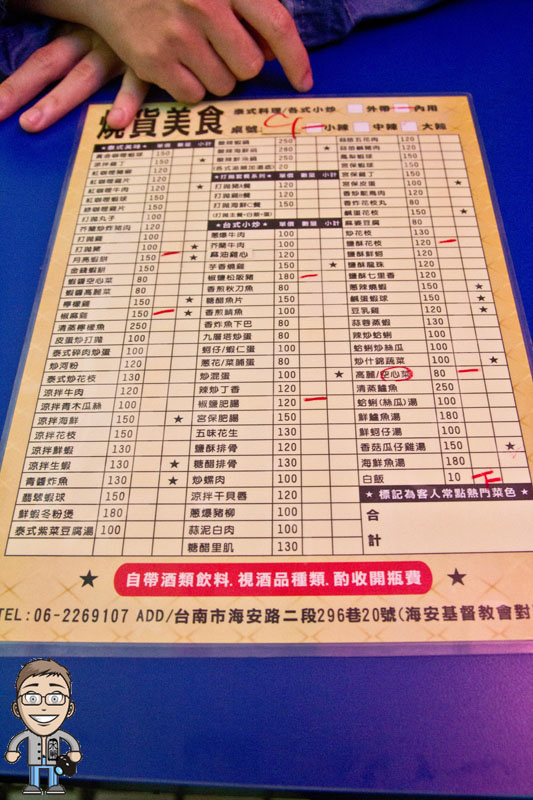 燒貨美食
泰式料理/各式小炒 外帶 內用
桌號: 9 小辣 中辣 大辣
★泰式風味★ 單價 數量 小計
萬金咖哩蝦球 150
涼拌雞丁 150 ★
紅咖哩雞片 120
紅咖哩牛肉 120 ★
綠咖哩雞片 150
打拋丸子 100
芥蘭炒炸豬肉 120
打拋雞 100
打拋豬 100 ★
月亮蝦餅 150 ★
金錢蝦餅 150
蝦醬空心菜 80
蝦醬高麗菜 80
檸檬雞 150 ★
椒麻雞 150 ★
清蒸檸檬魚 250
皮蛋炒打拋 100
泰式碎肉炒蛋 100
炒河粉 120
泰式炒花枝 130
涼拌牛肉 120
涼拌青木瓜絲 100
涼拌海鮮 150 ★
涼拌花枝 150
涼拌鮮蝦 130
涼拌生蝦 130 ★
青醬炸魚 130 ★
翡翠蝦球 150
鮮蝦冬粉煲 180
泰式紫菜豆腐湯 100
酸辣蝦鍋 250
酸辣海鮮鍋 280 ★
酸辣鮮魚鍋 250
★打拋套餐系列★ 單價 數量 小計
打拋豬+餐 120
打拋雞+餐 120
打拋海鮮+餐 150
(打拋主餐+白飯+蛋)
★台式小炒★ 單價 數量 小計
蔥爆牛肉 100
芥蘭牛肉 100
麻油雞心 120
芋香燒雞 150 ★
椒鹽松阪豬 180
香煎秋刀魚 80
糖醋魚片 150
香煎鯖魚 100
香炸魚下巴 80
九層塔炒蛋 80
蚵仔/蝦仁蛋 100
蔥花/菜脯蛋 80
炒混蛋 100 ★
辣炒丁香 120
椒鹽肥腸 120
宮保肥腸 150
五味花生 130
鹽酥排骨 120
糖醋排骨 130
炒螺肉 100
涼拌干貝唇 120
蔥爆豬柳 100
蒜泥白肉 100
糖醋里肌 130
蒜苗五花肉 120
蒜苗鹹豬肉 120
鳳梨蝦球 150
宮保蝦球 150
宮保雞丁 100
宮保皮蛋 100 ★
香炒藍鳥肉 120
香炸花枝丸 80
鹹蛋花枝 150 ★
麻婆豆腐 80
炒花枝 130
鹽酥花枝 120
鹽酥鮮蚵 120
鹽酥龍珠 120
鹽酥七里香 120
蔥辣燒蝦 150 ★
鹹蛋蝦球 150 ★
豆乳雞 120 ★
蒜蓉蒸蝦 130
辣炒蛤蜊 100
蛤蜊炒絲瓜 100
炒什錦蔬菜 100 ★
高麗/空心菜 80
清蒸鱸魚 250
蛤蜊(絲瓜)湯 100
鮮鱸魚湯 180
鮮蚵仔湯 100
香菇瓜仔雞湯 150 ★
海鮮魚湯 180
白飯 10
★標記為客人常點熱門菜色★
合計
★ 自帶酒類飲料.視酒品種類.酌收開瓶費 ★
TEL:06-2269107 ADD/台南市海安路二段296巷20號(海安基督教會對